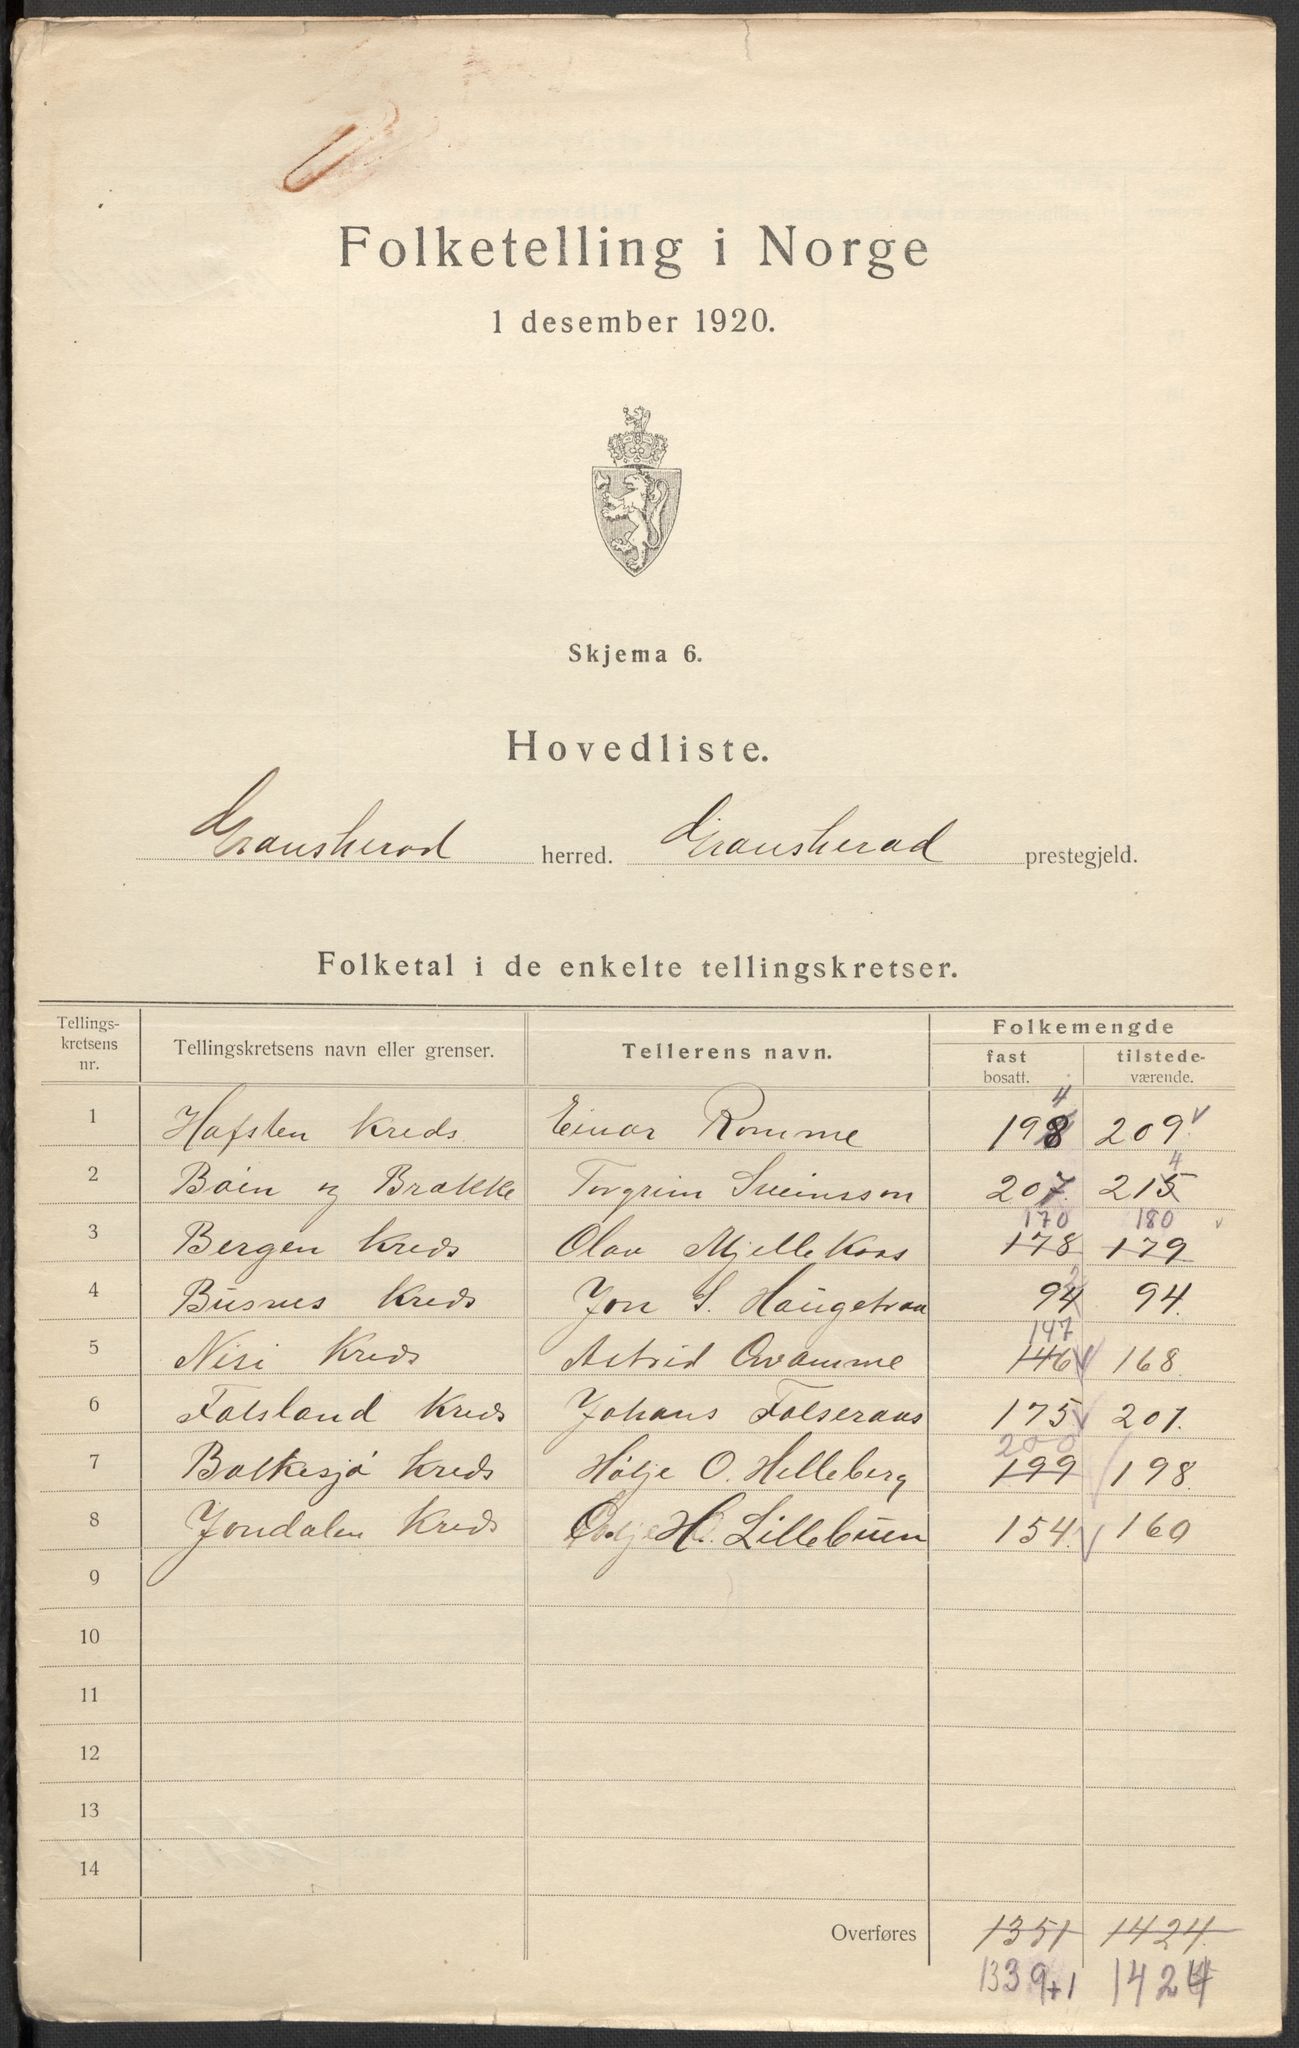 Folketelling i Norge
1 desember 1920.
Skjema 6.
Hovedliste.
Gransherad herred. Gransherad prestegjeld.
Folketal i de enkelte tellingskretser.
Tellings-kretsens nr. Tellingskretsens navn eller grenser. Tellerens navn. Folkemengde
fast bosatt. tilstede-værende.
4
1 Hafsten Kreds Einar Romme 198 209
4
2 Bøen og Brakke Torgrim Sveinsson 207. 215
170 180
3 Bergen Kreds Olav Mjellekaas 178 179
2
4 Busnes Kreds Jon S. Haugetraa 94 94.
147
5 Nisi Kreds Astrid Qvamme 146 168
6 Folsland Kreds Johans Folseraas 175 201.
200
7 Bolkesjø Kreds Hølje O. Helleberg 199 198.
8 Jondalen Kreds H. Lillebuen 154. 160
9
10
11
12
13
14
Overføres 1351 1424.
1339+1 1424